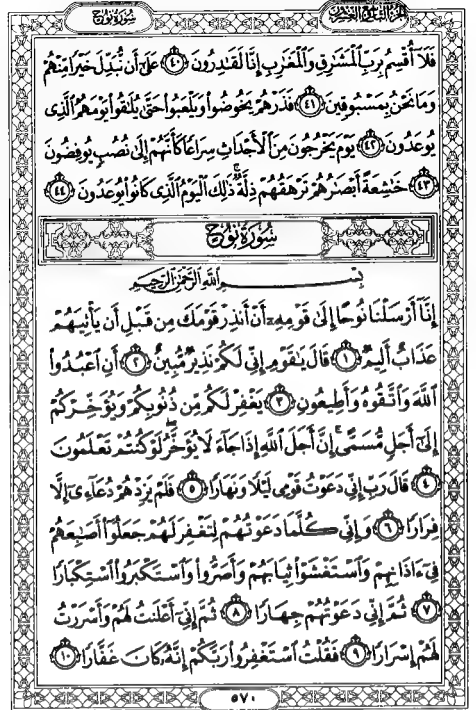 سُورَةُ نُوحٍ
فَلَآ أُقْسِمُ بِرَبِّ ٱلْمَشَٰرِقِ وَٱلْمَغَٰرِبِ إِنَّا لَقَٰدِرُونَ ٤٠ عَلَىٰٓ أَن نُّبَدِّلَ خَيْرًا مِّنْهُمْ
وَمَا نَحْنُ بِمَسْبُوقِينَ ٤١ فَذَرْهُمْ يَخُوضُوا۟ وَيَلْعَبُوا۟ حَتَّىٰ يُلَٰقُوا۟ يَوْمَهُمُ ٱلَّذِى
يُوعَدُونَ ٤٢ يَوْمَ يَخْرُجُونَ مِنَ ٱلْأَجْدَاثِ سِرَاعًا كَأَنَّهُمْ إِلَىٰ نُصُبٍ يُوفِضُونَ
٤٣ خَٰشِعَةً أَبْصَٰرُهُمْ تَرْهَقُهُمْ ذِلَّةٌ ۚ ذَٰلِكَ ٱلْيَوْمُ ٱلَّذِى كَانُوا۟ يُوعَدُونَ ٤٤
سُورَةُ نُوحٍ
بِسْمِ ٱللَّهِ ٱلرَّحْمَٰنِ ٱلرَّحِيمِ
إِنَّآ أَرْسَلْنَا نُوحًا إِلَىٰ قَوْمِهِۦٓ أَنْ أَنذِرْ قَوْمَكَ مِن قَبْلِ أَن يَأْتِيَهُمْ
عَذَابٌ أَلِيمٌ ١ قَالَ يَٰقَوْمِ إِنِّى لَكُمْ نَذِيرٌ مُّبِينٌ ٢ أَنِ ٱعْبُدُوا۟
ٱللَّهَ وَٱتَّقُوهُ وَأَطِيعُونِ ٣ يَغْفِرْ لَكُم مِّن ذُنُوبِكُمْ وَيُؤَخِّرْكُمْ
إِلَىٰٓ أَجَلٍ مُّسَمًّى ۚ إِنَّ أَجَلَ ٱللَّهِ إِذَا جَآءَ لَا يُؤَخَّرُ ۖ لَوْ كُنتُمْ تَعْلَمُونَ
٤ قَالَ رَبِّ إِنِّى دَعَوْتُ قَوْمِى لَيْلًا وَنَهَارًا ٥ فَلَمْ يَزِدْهُمْ دُعَآءِىٓ إِلَّا
فِرَارًا ٦ وَإِنِّى كُلَّمَا دَعَوْتُهُمْ لِتَغْفِرَ لَهُمْ جَعَلُوٓا۟ أَصَٰبِعَهُمْ
فِىٓ ءَاذَانِهِمْ وَٱسْتَغْشَوْا۟ ثِيَابَهُمْ وَأَصَرُّوا۟ وَٱسْتَكْبَرُوا۟ ٱسْتِكْبَارًا
٧ ثُمَّ إِنِّى دَعَوْتُهُمْ جِهَارًا ٨ ثُمَّ إِنِّىٓ أَعْلَنتُ لَهُمْ وَأَسْرَرْتُ
لَهُمْ إِسْرَارًا ٩ فَقُلْتُ ٱسْتَغْفِرُوا۟ رَبَّكُمْ إِنَّهُۥ كَانَ غَفَّارًا ١٠
٥٧٠